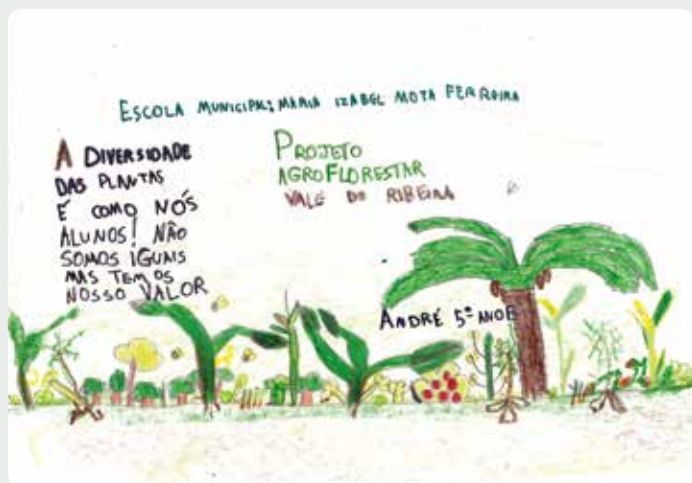 ESCOLA MUNICIPAL: MARIA IZABEL MOTA FERREIRA
A DIVERSIDADE
DAS PLANTAS
É COMO NÓS
ALUNOS! NÃO
SOMOS IGUAIS
MAS TEMOS
NOSSO VALOR
PROJETO
AGROFLORESTAR
VALE DO RIBEIRA
ANDRÉ 5º ANO E